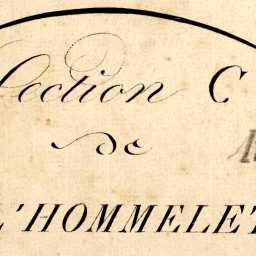 Section C
de
L'HOMMELET